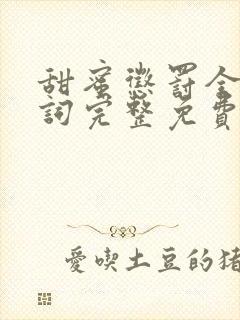 甜蜜懲罰全
詞完整免費
愛喫土豆的豬